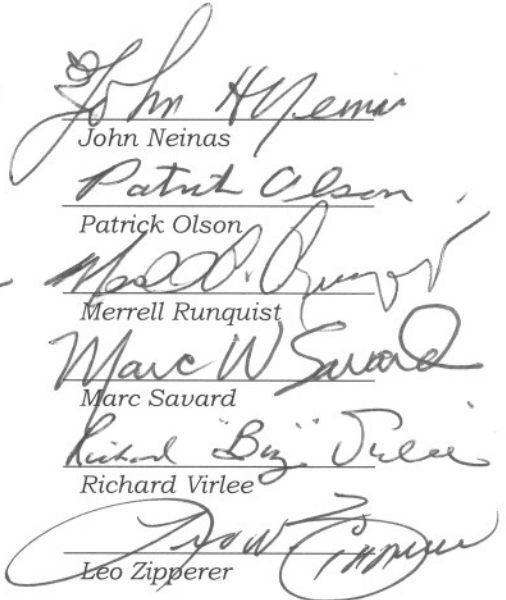 John H Neinas
John Neinas
Patrick Olson
Patrick Olson
Merrell Runquist
Marc W Savard
Marc Savard
Richard "Biz" Virlee
Richard Virlee
Leo W Zipperer
Leo Zipperer